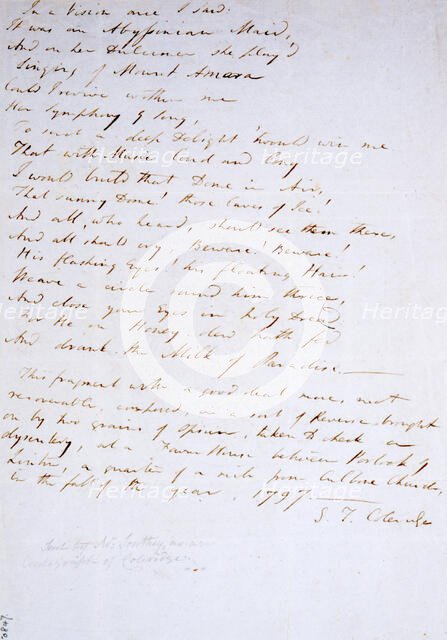 In a Vision once I saw:
It was an Abyssinian Maid,
And on her Dulcimer she play'd
Singing of Mount Amara
Could I revive within me
Her Symphony & Song,
To such a deep Delight 'twould win me
That with Music loud and long
I would build that Dome in Air,
That sunny Dome! those Caves of Ice!
And all, who heard, should see them there,
And all should cry, Beware! Beware!
His flashing Eyes! his floating Hair!
Weave a circle round him thrice,
And close your Eyes in holy Dread:
For He on Honey-dew hath fed
And drank the Milk of Paradise.
This fragment with a good deal more, not
recoverable, composed, in a sort of Reverie brought
on by two grains of Opium, taken to check a
dysentery, at a Farm House between Porlock &
Linton, a quarter of a mile from Culbone Church,
in the fall of the year, 1797
S. T. Coleridge
Sent by Mr Southey, as an
Autograph of Coleridge
Heritage
Heritage
Heritage
Heritage
Heritage
Heritage
©